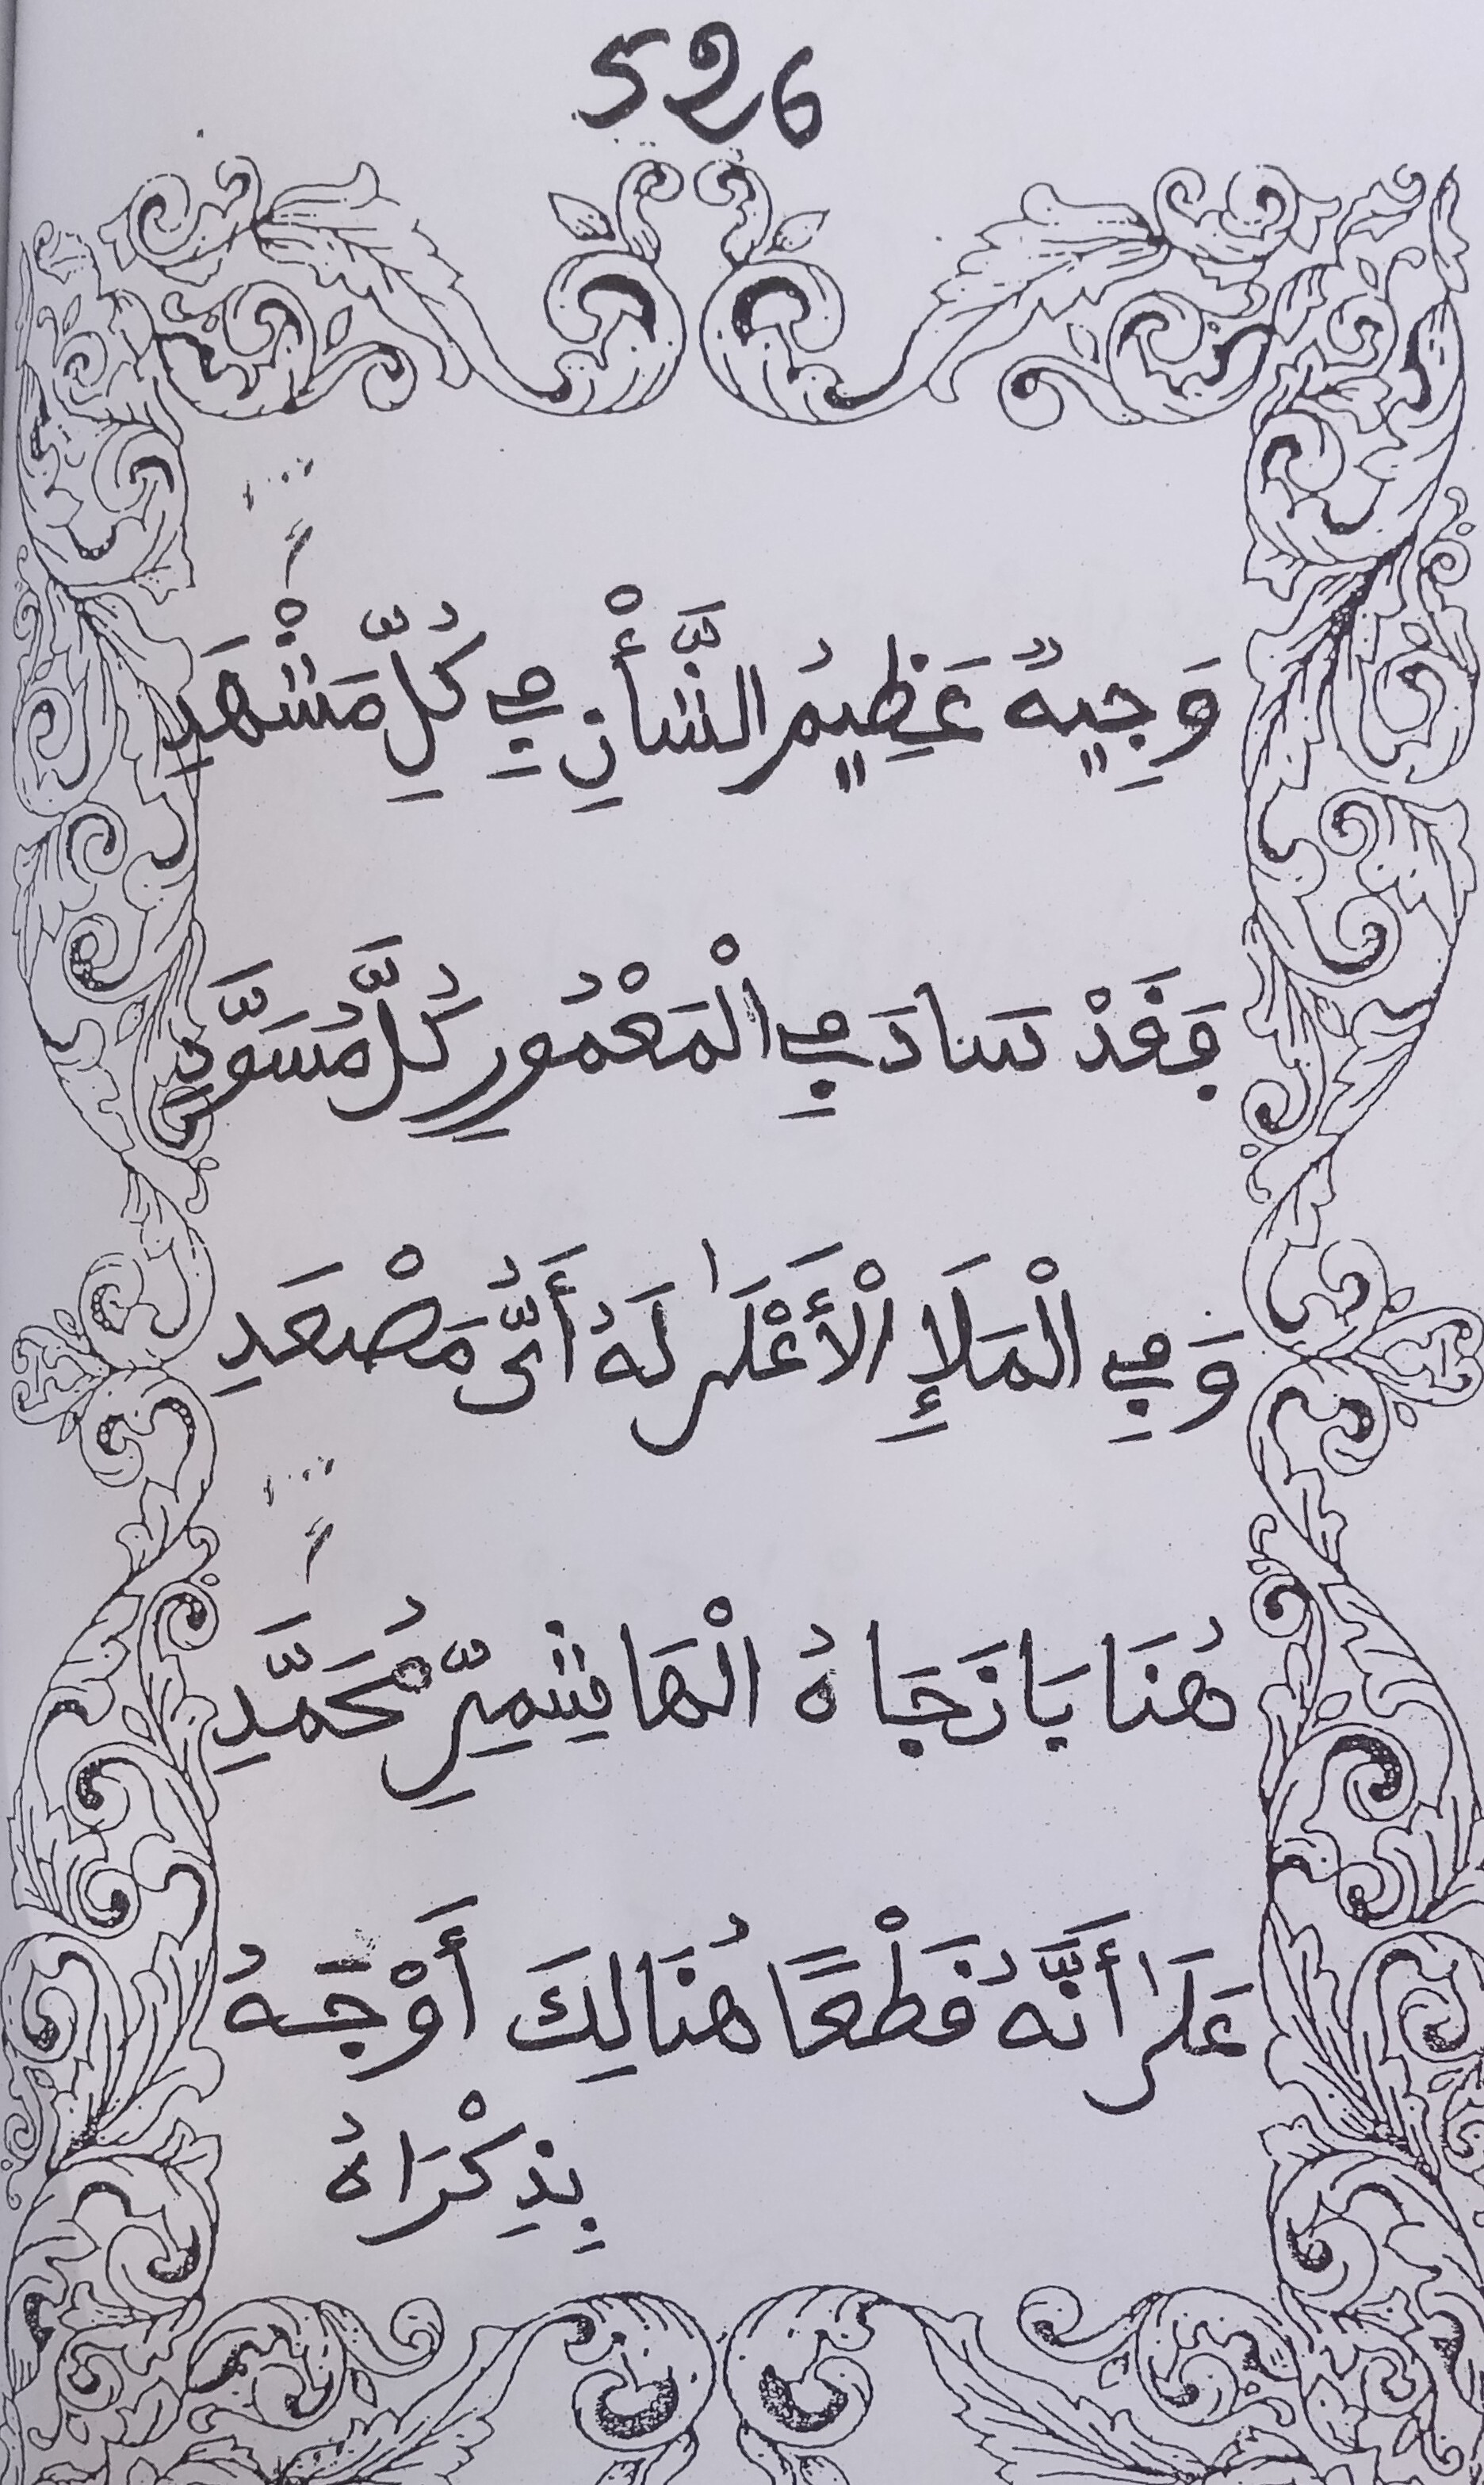 526
وَجِيهٌ عَظِيمُ الشَّأْنِ فِي كُلِّ مَشْهَدِ
فَقَدْ سَادَ فِي الْمَعْمُورِ كُلَّ مُسَوَّدِ
وَفِي الْمَلَإِ الْأَعْلَىٰ لَهُ أَيُّ مَصْعَدِ
هُنَا بَانَ جَاهُ الْهَاشِمِيِّ مُحَمَّدِ
عَلَىٰ أَنَّهُ قَطْعًا هُنَالِكَ أَوْجَهُ
بِذِكْرَاهُ